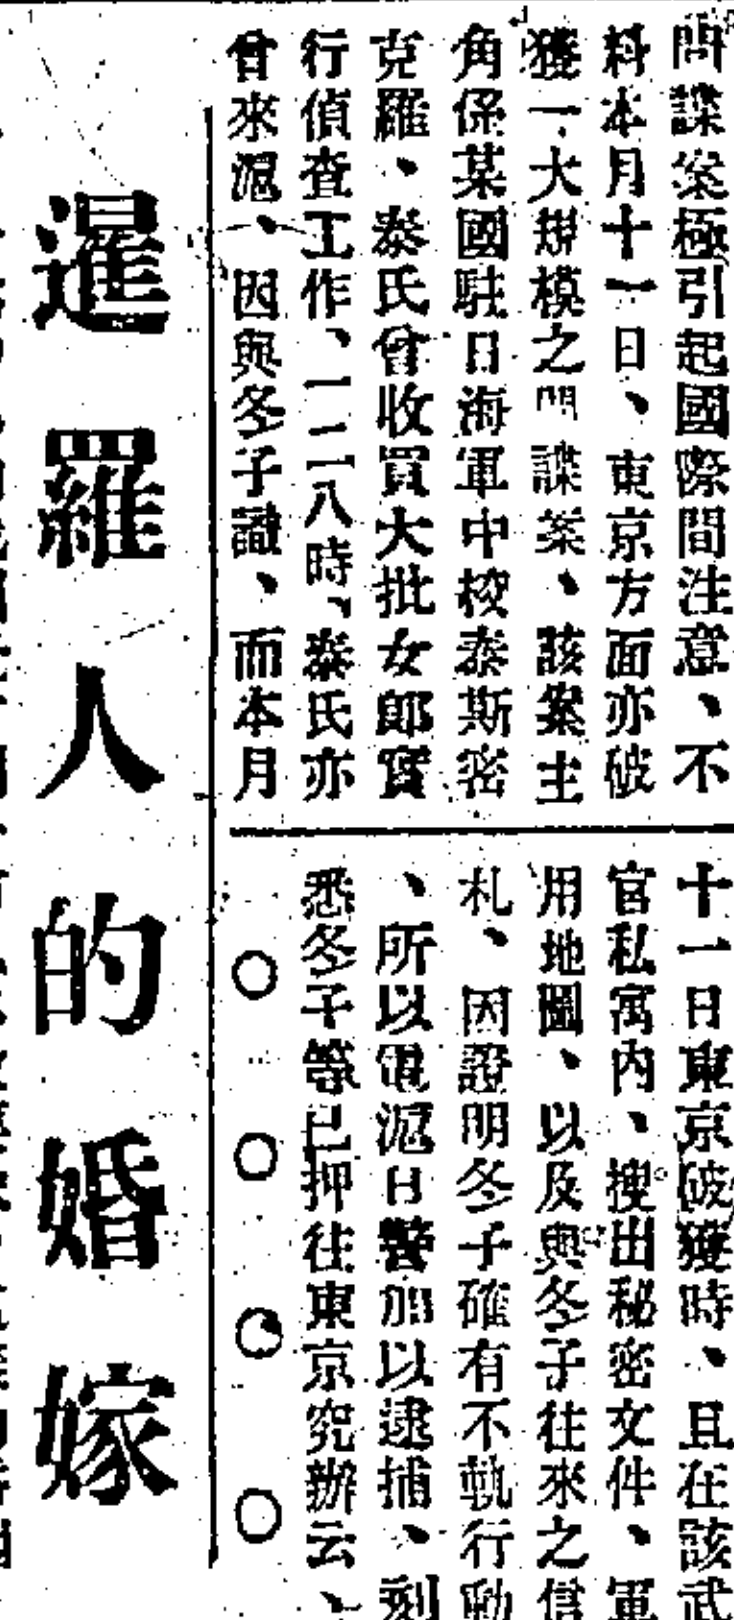 間諜案極引起國際間注意、不
料本月十一日、東京方面亦破
獲一大規模之間諜案、該案主
角係某國駐日海軍中校泰斯密
克羅、泰氏曾收買大批女郎實
行偵查工作、一二八時、泰氏亦
曾來滬、因與冬子識、而本月
十一日東京破獲時、且在該武
官私寓內、搜出秘密文件、軍
用地圖、以及與冬子往來之信
札、因證明冬子確有不軌行動
、所以電滬日警加以逮捕、刻
悉冬子等已押往東京究辦云、
○○○○
暹羅人的婚嫁